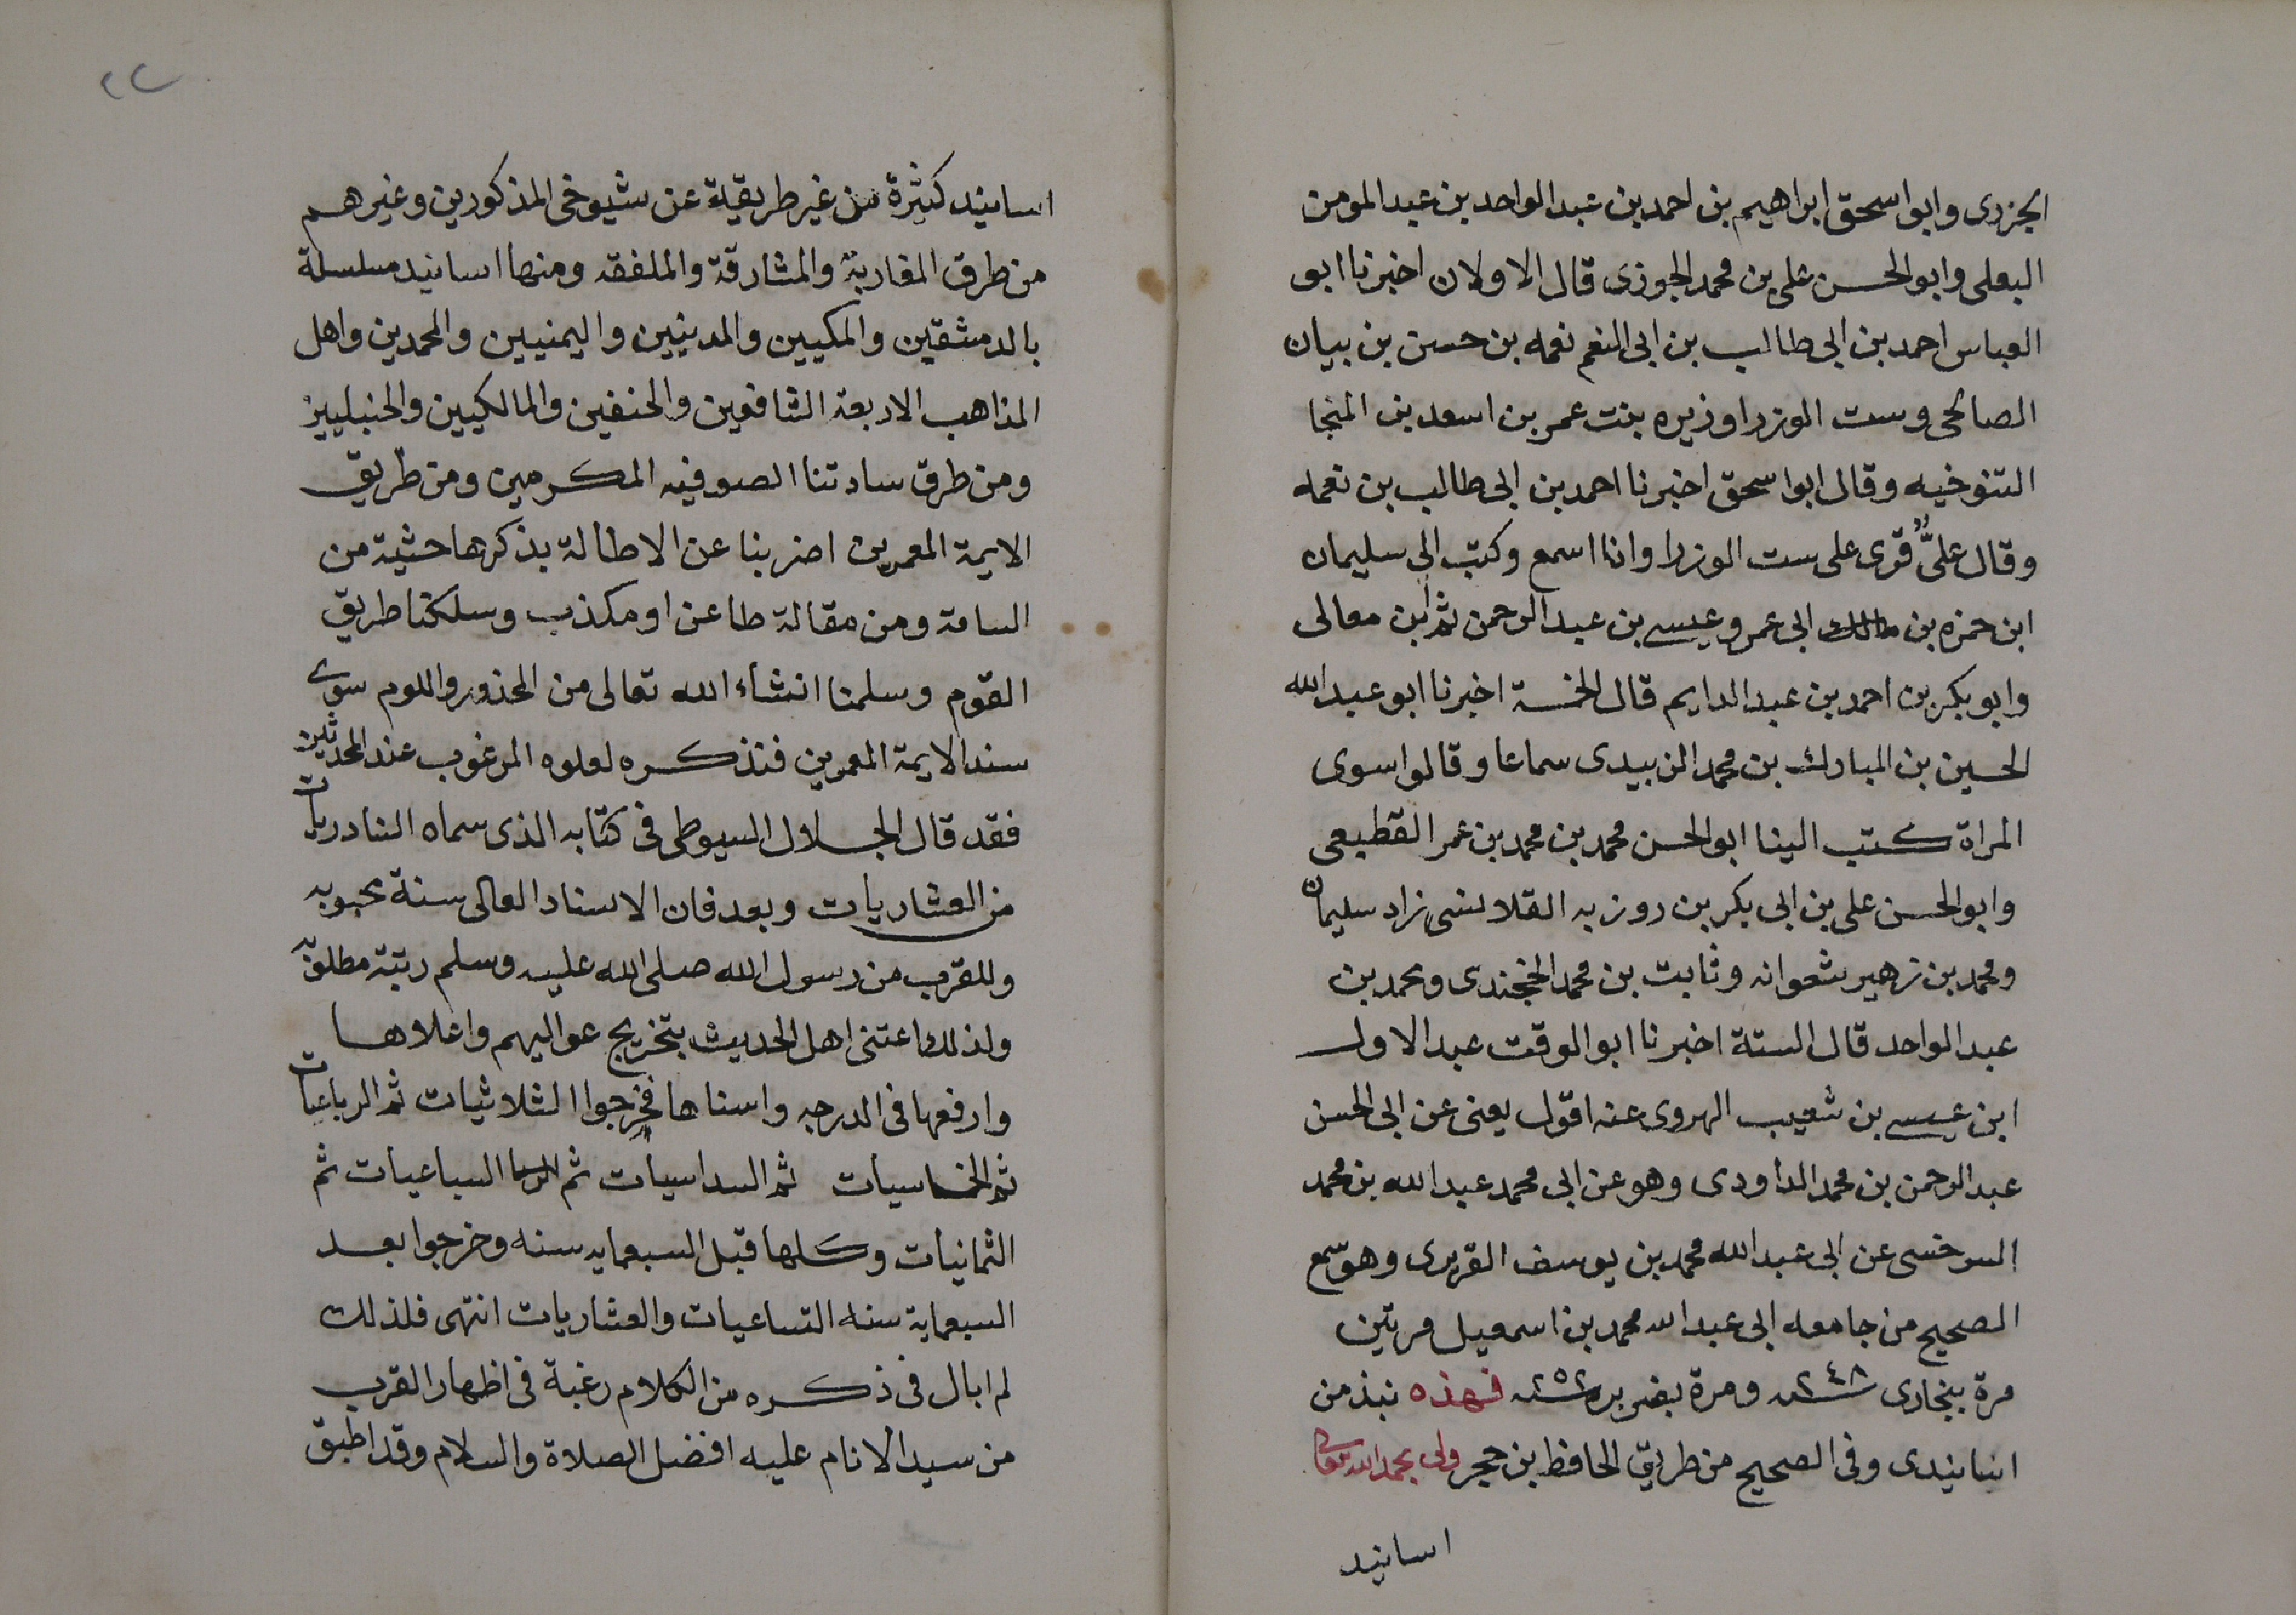 الجزرى وابو اسحق ابراهيم بن احمد بن عبد الواحد بن عبد المومن
البعلى وابو الحسن على بن محمد الجوزى قال الاولان اخبرنا ابو
العباس احمد بن ابى طالب بن ابى النعم نعمه بن حسن بن بيان
الصالحى وست الوزرا وزيره بنت عمر بن اسعد بن المنجا
التنوخيه وقال ابو اسحق اخبرنا احمد بن ابى طالب بن نعمه
وقال علىٌّ قرى على ست الوزرا وانا اسمع وكتب الى سليمان
ابن حمزه بن ابى عمر وعيسى بن عبد الرحمن بن معالى
وابو بكر بن احمد بن عبد الدايم قال الخمسة اخبرنا ابو عبد الله
الحسين بن المبارك بن محمد الزبيدى سماعا وقالوا سوى
المراة كتب الينا ابو الحسن محمد بن محمد بن عمر القطيعى
وابو الحسن على بن ابى بكر بن روزبه القلانسى زاد سليمان
ومحمد بن زهير شعوانه وثابت بن محمد الخجندى ومحمد بن
عبد الواحد قال الستة اخبرنا ابو الوقت عبد الاول
ابن عيسى بن شعيب الهروى عنه اقول يعنى عن ابى الحسن
عبد الرحمن بن محمد الداودى وهو عن ابى محمد عبد الله بن محمد
السرخسى عن ابى عبد الله محمد بن يوسف الفربرى وهو سمع
الصحيح من جامعه ابى عبد الله محمد بن اسمعيل مرتين
مرة ببخارى سنة ٢٤٨ ومرة بفربر سنة ٢٥٢ فهذه نبذ من
اسانيدى وفى الصحيح من طريق الحافظ بن حجر ولى بحمد الله تعالى
اسانيد
٢٢
اسانيد كثيرة من غير طريقية عن شيوخى المذكورين وغيرهم
من طرق المغاربة والمشارقة والملفقه ومنها اسانيد مسلسلة
بالدمشقين والمكيين والمدينيين واليمنيين والمحمدين واهل
المذاهب الاربعة الشافعين والحنفين والمالكيين والحنبليين
ومن طرق سادتنا الصوفيه المكرمين ومن طريق
الايمة المعمرين اضربنا عن الاطالة بذكرها حشية من
السامة ومن مقالة طاعن او مكذب وسلكنا طريق
القوم وسلمنا انشاء الله تعالى من المحذور واللوم سوى
سند الايمة المعمرين فنذكره لعلوه المرغوب عند المحدثين
فقد قال الجلال السيوطى فى كتابه الذى سماه النادريات
من العشاريات وبعد فان الاسناد العالى سنة محبوبه
وللقرب من رسول الله صلى الله عليه وسلم رتبة مطلوبه
ولذلك اعتنى اهل الحديث بتخريج عواليهم واعلاها
وارفعها فى الدرجه واسناها فخرجوا الثلاثيات ثم الرباعيات
ثم الخماسيات ثم السداسيات ثم السباعيات ثم
الثمانيات وكلها قبل السبعمايه سنه وخرجوا بعد
السبعماية سنه التساعيات والعشاريات انتهى فلذلك
لم ابال فى ذكره من الكلام رغبة فى اظهار القرب
من سيد الانام عليه افضل الصلاة والسلام وقد اطبق